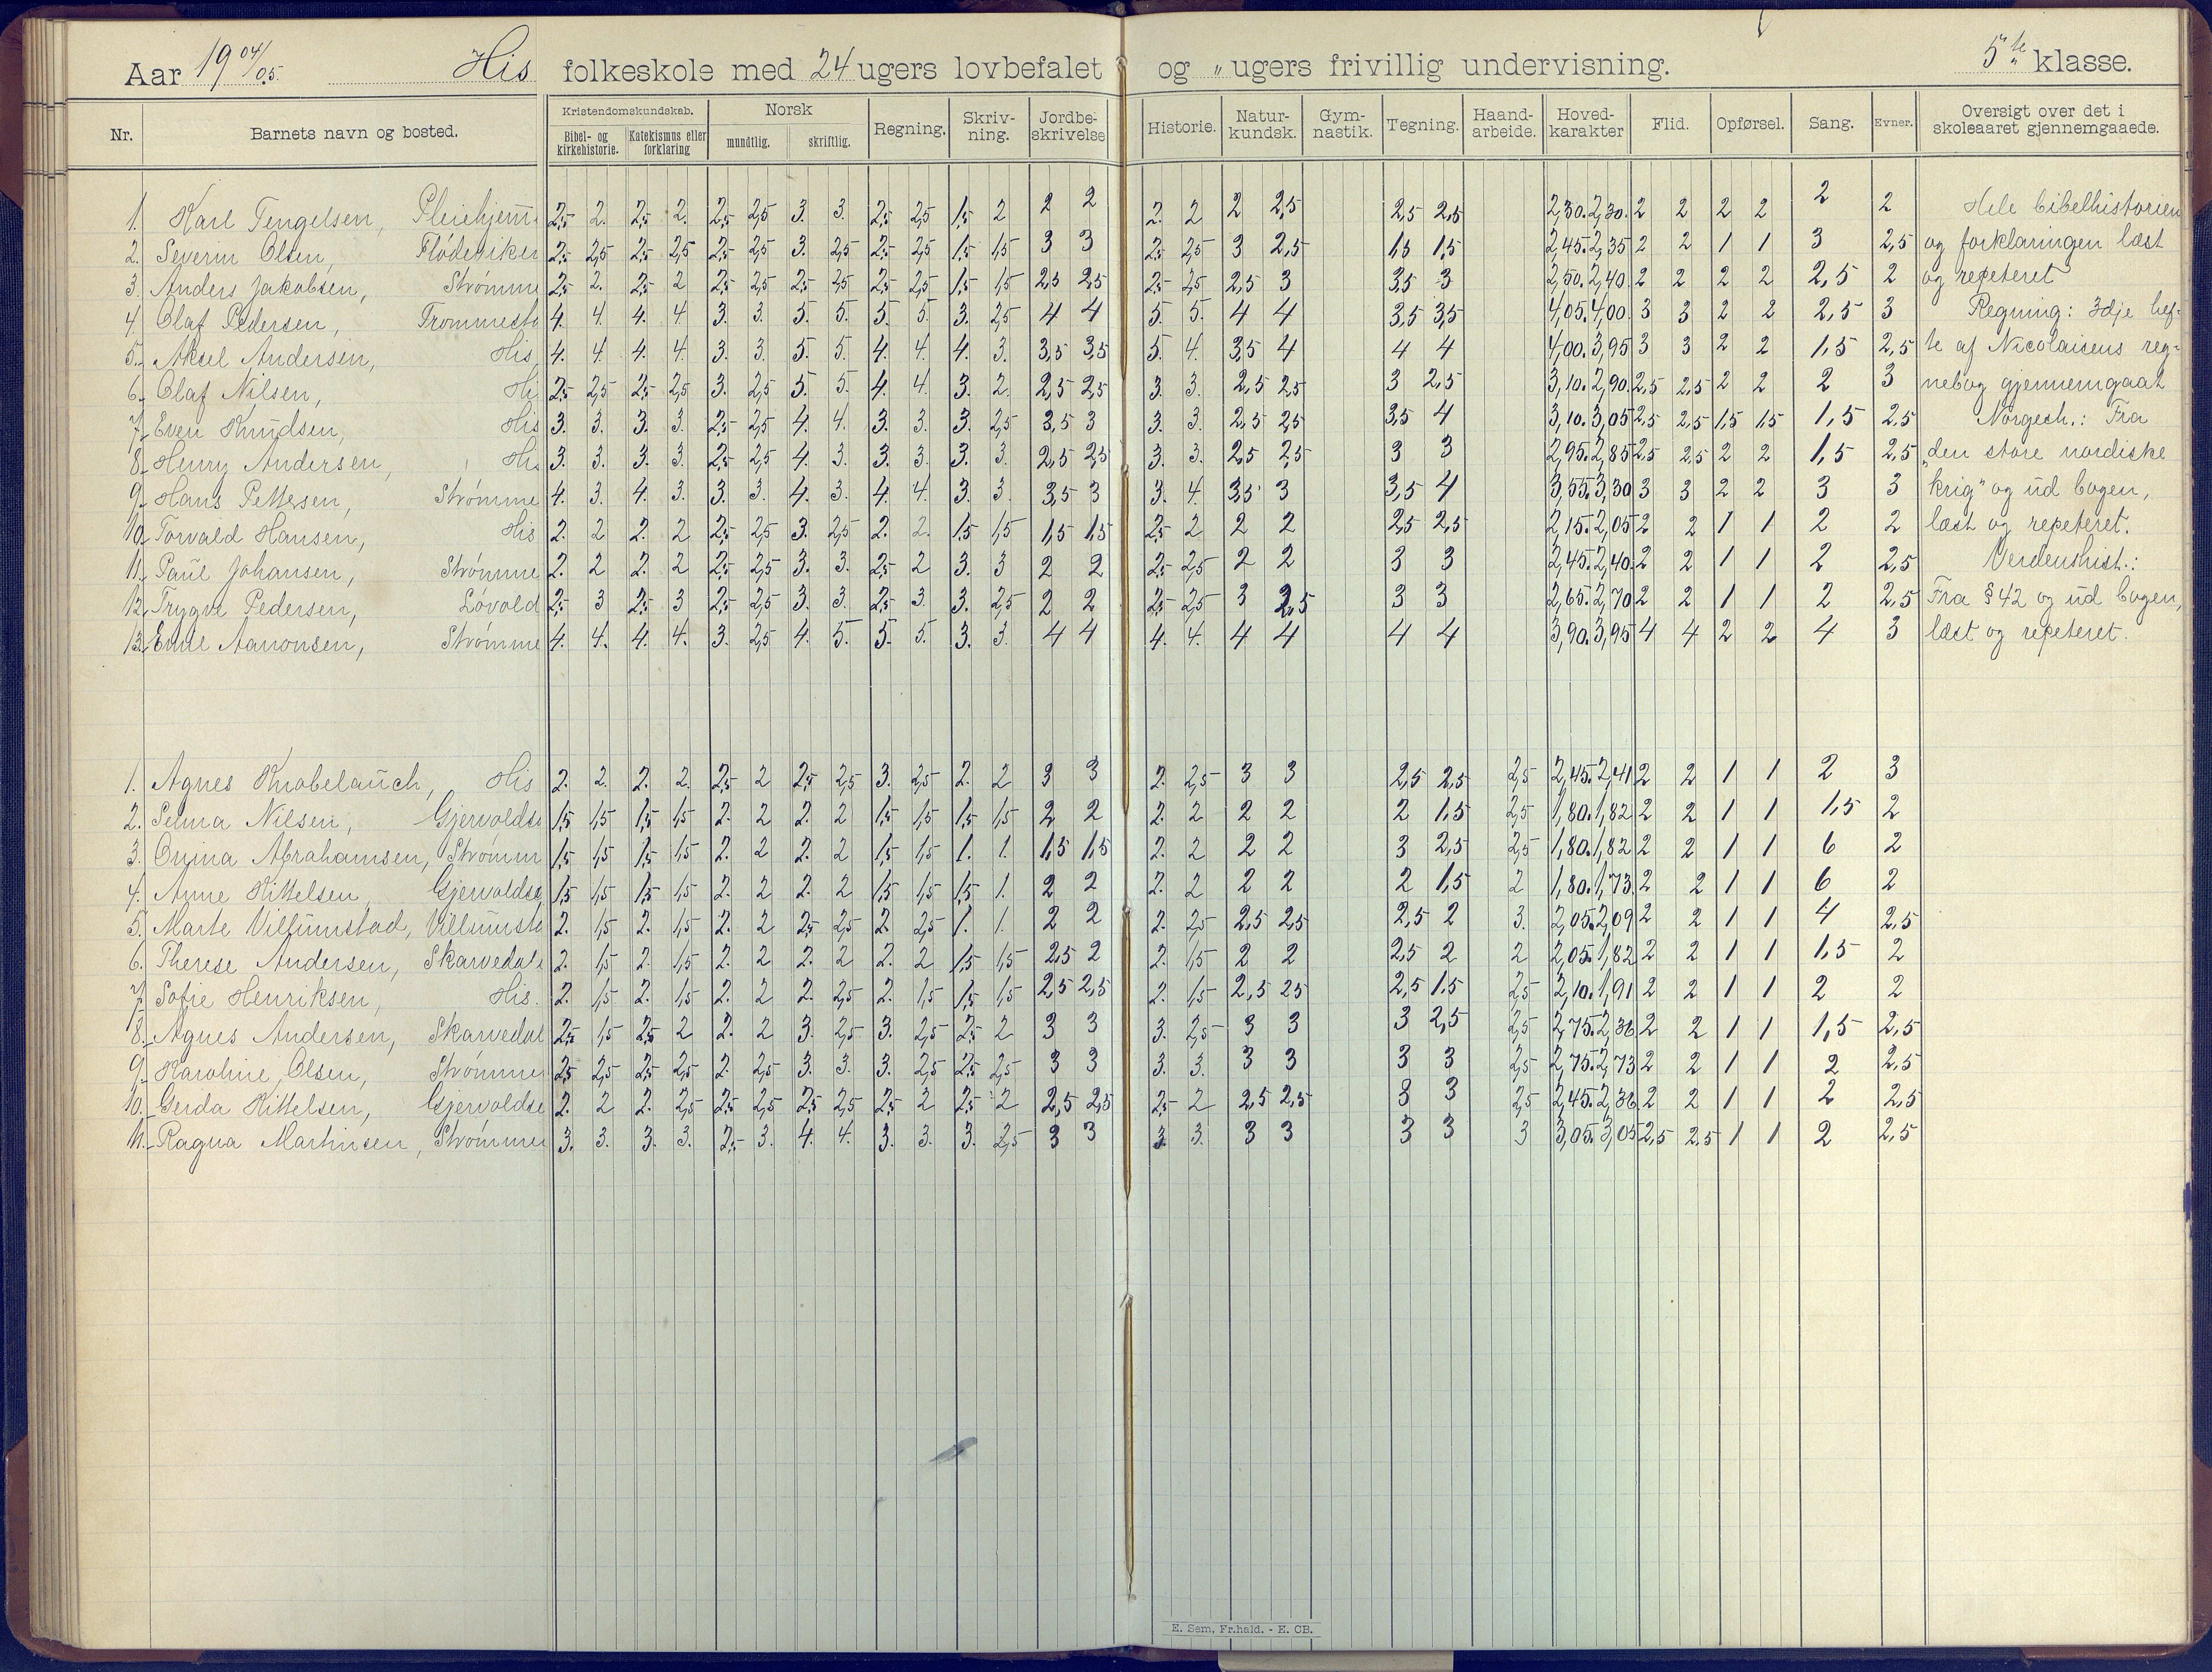 Aar 19 04/05. His folkeskole med 24 ugers lovbefalet og " ugers frivillig undervisning. 5te klasse.
Nr. Barnets navn og bosted. Kristendomskundskab. Bibel- og kirkehistorie. Katekismus eller forklaring Norsk mundtlig. skriftlig. Regning. Skriv-ning. Jordbe-skrivelse Historie. Natur-kundsk. Gym-nastik. Tegning. Haand-arbeide. Hoved-karakter Flid. Opførsel. Sang. Evner. Oversigt over det i skoleaaret gjennemgaaede.
1. Karl Tengelsen, Pleiehjem 2,5 2. 2,5 2. 2,5 2,5 3. 3. 2,5 2,5 1,5 2 2 2 2. 2 2 2,5 2,5 2,5 2,30. 2,30. 2 2 2 2 2 2 Hele bibelhistorien
2. Severin Olsen, Flødeviken 2,5 2,5 2,5 2,5 2,5 2,5 3. 2,5 2,5 2,5 1,5 1,5 3 3 2,5 2,5 3 2,5 1,5 1,5 2,45. 2,35 2 2 1 1 3 2,5 og forklaringen læst
3. Anders Jakobsen, Strømme 2,5 2. 2,5 2 2,5 2,5 2,5 2,5 2,5 2,5 1,5 1,5 2,5 2,5 2,5 2,5 2,5 3 3,5 3 2,50. 2,40. 2 2 2 2 2,5 2 og repeteret
4. Olaf Pedersen, Trommesto 4. 4. 4. 4. 3. 3. 5. 5. 5. 5. 3. 2,5 4 4 5. 5. 4 4 3,5 3,5 4,05. 4,00. 3 3 2 2 2,5 3 Regning: 3dje hef-
5. Aksel Andersen, His 4. 4. 4. 4. 3. 3. 5. 5. 4. 4. 4. 3. 3,5 3,5 5. 4. 3,5 4 4 4 4,00. 3,95 3 3 2 2 1,5 2,5 te af Nicolaisens reg-
6. Olaf Nilsen, Hi 2,5 2,5 2,5 2,5 3. 2,5 5. 5. 4. 4. 3. 2. 2,5 2,5 3. 3. 2,5 2,5 3 2,5 3,10. 2,90. 2,5 2,5 2 2 2 3 nebog gjennemgaat
7. Even Knudsen, His 3. 3. 3. 3. 2,5 2,5 4. 4. 3. 3. 3. 2,5 3,5 3 3. 3. 2,5 2,5 3,5 4 3,10. 3,05 2,5 2,5 1,5 1,5 1,5 2,5 Norgesh.: Fra
8. Henry Andersen, His 3. 3. 3. 3. 2,5 2,5 4. 3. 3. 3. 3. 3. 2,5 2,5 3. 3. 2,5 2,5 3 3 2,95. 2,85 2,5 2,5 2 2 1,5 2,5 "den store nordiske
9. Hans Pettersen, Strømme 4. 3. 4. 3. 3. 3. 4. 3. 4. 4. 3. 3. 3,5 3 3. 4. 3,5 3 3,5 4 3,55. 3,30 3 3 2 2 3 3 krig" og ud bogen,
10. Torvald Hansen, His 2. 2 2. 2 2,5 2,5 3. 2,5 2. 2. 1,5 1,5 1,5 1,5 2,5 2 2 2 2,5 2,5 2,15. 2,05 2 2 1 1 2 2 læst og repeteret.
11. Paul Johansen, Strømme 2. 2 2. 2 2,5 2,5 3. 3. 2,5 2 3. 3 2 2 2,5 2,5 2 2 3 3 2,45. 2,40. 2 2 1 1 2 2,5 Verdenshist.:
12. Trygve Pedersen, Løvold 2,5 3 2,5 3 2,5 2,5 3. 3. 2,5 3. 3. 2,5 2 2 2,5 2,5 3 2,5 3 3 2,65. 2,70 2 2 1 1 2 2,5 Fra § 42 og ud bogen,
13. Emil Aanonsen, Strømme 4. 4. 4. 4. 3. 2,5 4. 5. 5. 5. 3. 3. 4 4 4. 4. 4 4 4 4 3,90. 3,95 4 4 2 2 4 3 læst og repeteret.
1. Agnes Knobelauch, His 2. 2. 2. 2. 2,5 2 2,5 2,5 3. 2,5 2. 2 3 3 2. 2,5 3 3 2,5 2,5 2,5 2,45. 2,41 2 2 1 1 2 3
2. Selma Nilsen, Gjervoldso 1,5 1,5 1,5 1,5 2. 2 2. 2 1,5 1,5 1,5 1,5 2 2 2. 2 2 2 2 1,5 2,5 1,80. 1,82 2 2 1 1 1,5 2
3. Abrahamsen, Strømm 1,5 1,5 1,5 1,5 2. 2 2. 2 1,5 1,5 1. 1. 1,5 1,5 2. 2 2 2 3 2,5 2,5 1,80. 1,82 2 2 1 1 6 2
4. Anne Kittelsen Gjervoldsø 1,5 1,5 1,5 1,5 2. 2 2. 2 1,5 1,5 1,5 1. 2 2 2. 2 2 2 2 1,5 2 1,80. 1,73 2 2 1 1 6 2
5. Marte Villumstad, Villumsta 2. 1,5 2. 1,5 2. 2 2,5 2,5 2. 2,5 1. 1. 2 2 2. 2,5 2,5 2,5 2,5 2 3. 2,05. 2,09 2 2 1 1 4 2,5
6. Therese Andersen, Skarvedal 2. 1,5 2. 1,5 2. 2 2. 2 2. 2 1,5 1,5 2,5 2 2. 1,5 2 2 2,5 2 2 2,05. 1,82 2 2 1 1 1,5 2
7. Sofie Henriksen, His. 2. 1,5 2. 1,5 2. 2 2. 2,5 2. 1,5 1,5 1,5 2,5 2,5 2. 1,5 2,5 2,5 2,5 1,5 2,5 2,10. 1,91 2 2 1 1 2 2
8. Agnes Andersen, Skarvedal 2,5 1,5 2,5 2 2. 2 3. 2,5 3. 2,5 2,5 2 3 3 3. 2,5 3 3 3 2,5 2,5 2,75. 2,36 2 2 1 1 1,5 2,5
9. Karoline Olsen, Strømme 2,5 2,5 2,5 2,5 2. 2,5 3. 3. 3. 2,5 2,5 2,5 3 3 3. 3. 3 3 3 3 2,5 2,75. 2,73 2 2 1 1 2 2,5
10. Gerda Kittelsen, Gjervoldsø 2. 2 2. 2,5 2,5 2,5 2,5 2,5 2,5 2 2,5 2 2,5 2,5 2,5 2 2,5 2,5 3 3 2,5 2,45. 2,36 2 2 1 1 2 2,5
11. Ragna Martinsen, Strømme 3. 3. 3. 3. 2,5 3. 4. 4. 3. 3. 3. 2,5 3 3 3. 3. 3 3 3 3 3 3,05. 3,05 2,5 2,5 1 1 2 2,5
E. Sem, Fr.hald. - E. CB.